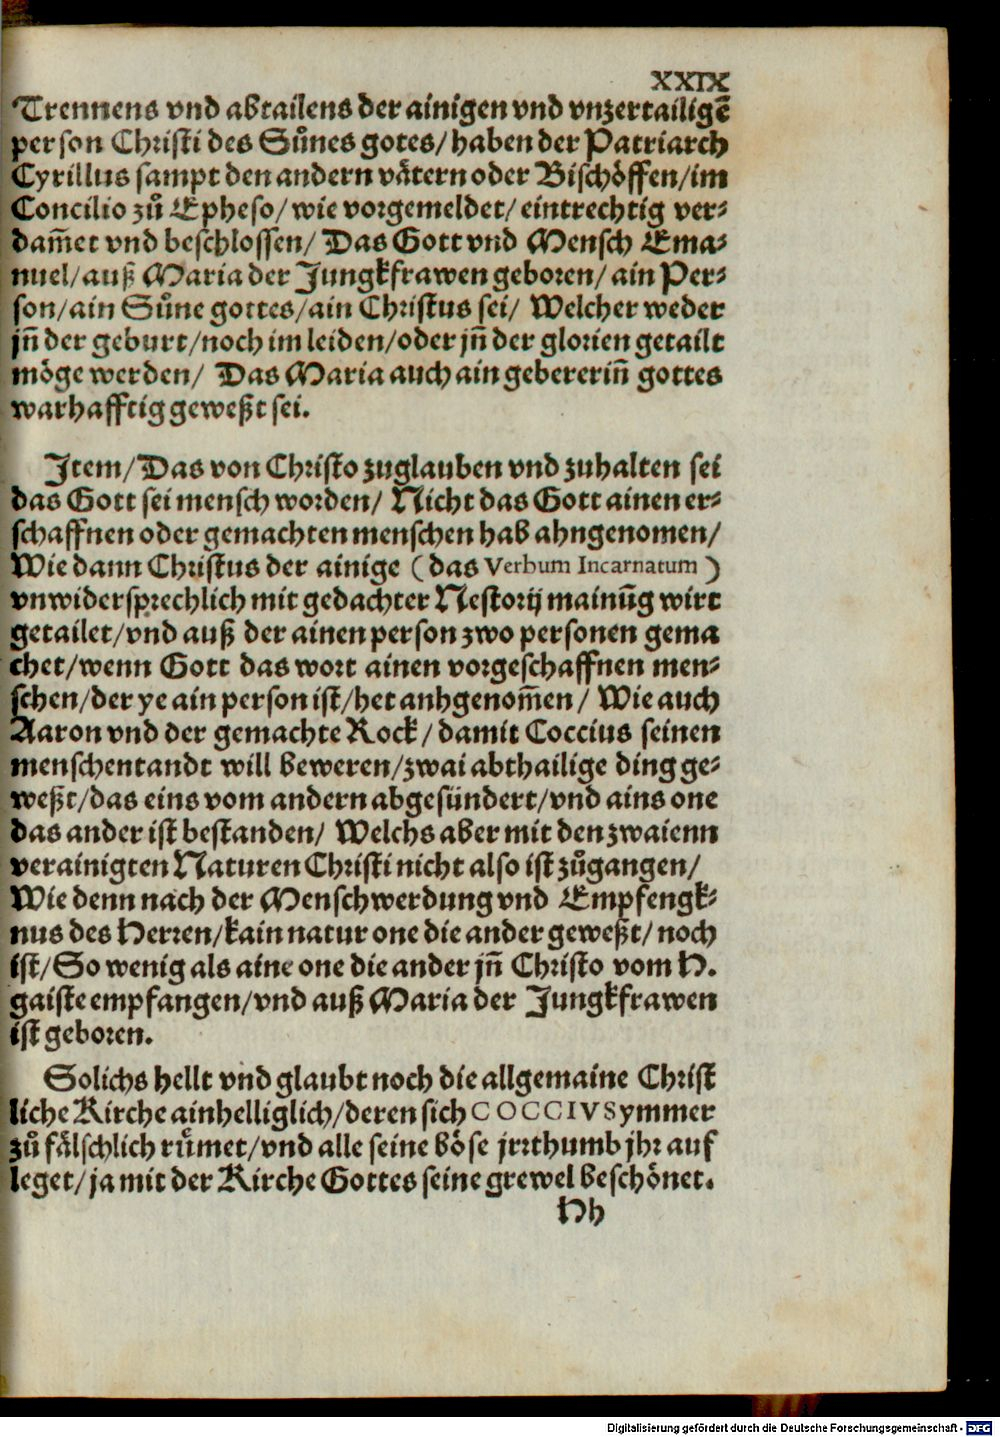 XXIX
Trennens vnd abtailens der ainigen vnd vnzertailigē
person Christi des Sůnes gotes/ haben der Patriarch
Cyrillus sampt den andern vätern oder Bischöffen/ im
Concilio zů Epheso/ wie vorgemeldet/ eintrechtig ver-
dam̄et vnd beschlossen/ Das Gott vnd Mensch Ema-
nuel/ auß Maria der Jungkfrawen geboren/ ain Per-
son/ ain Sůne gottes/ ain Christus sei/ Welcher weder
jn̄ der geburt/ noch im leiden/ oder jn̄ der glorien getailt
möge werden/ Das Maria auch ain gebererin̄ gottes
warhafftig geweßt sei.
Item/ Das von Christo zuglauben vnd zuhalten sei
das Gott sei mensch worden/ Nicht das Gott ainen er-
schaffnen oder gemachten menschen hab ahngenomen/
Wie dann Christus der ainige (das Verbum Incarnatum)
vnwidersprechlich mit gedachter Nestorij mainūg wirt
getailet/ vnd auß der ainen person zwo personen gema
chet/ wenn Gott das wort ainen vorgeschaffnen men-
schen/ der ye ain person ist/ het anhgenom̄en/ Wie auch
Aaron vnd der gemachte Rock/ damit Coccius seinen
menschentandt will beweren/ zwai abthailige ding ge-
weßt/ das eins vom andern abgesündert/ vnd ains one
das ander ist bestanden/ Welchs aber mit den zwaienn
verainigten Naturen Christi nicht also ist zůgangen/
Wie denn nach der Menschwerdung vnd Empfengk-
nus des Herren/ kain natur one die ander geweßt/ noch
ist/ So wenig als aine one die ander jn̄ Christo vom H.
gaiste empfangen/ vnd auß Maria der Jungkfrawen
ist geboren.
Solichs hellt vnd glaubt noch die allgemaine Christ
liche Kirche ainhelliglich/ deren sich COCCIVS ymmer
zů fälschlich růmet/ vnd alle seine böse jrrthumb jhr auf
leget/ ja mit der Kirche Gottes seine grewel beschönet.
Hh
Digitalisierung gefördert durch die Deutsche Forschungsgemeinschaft - DFG